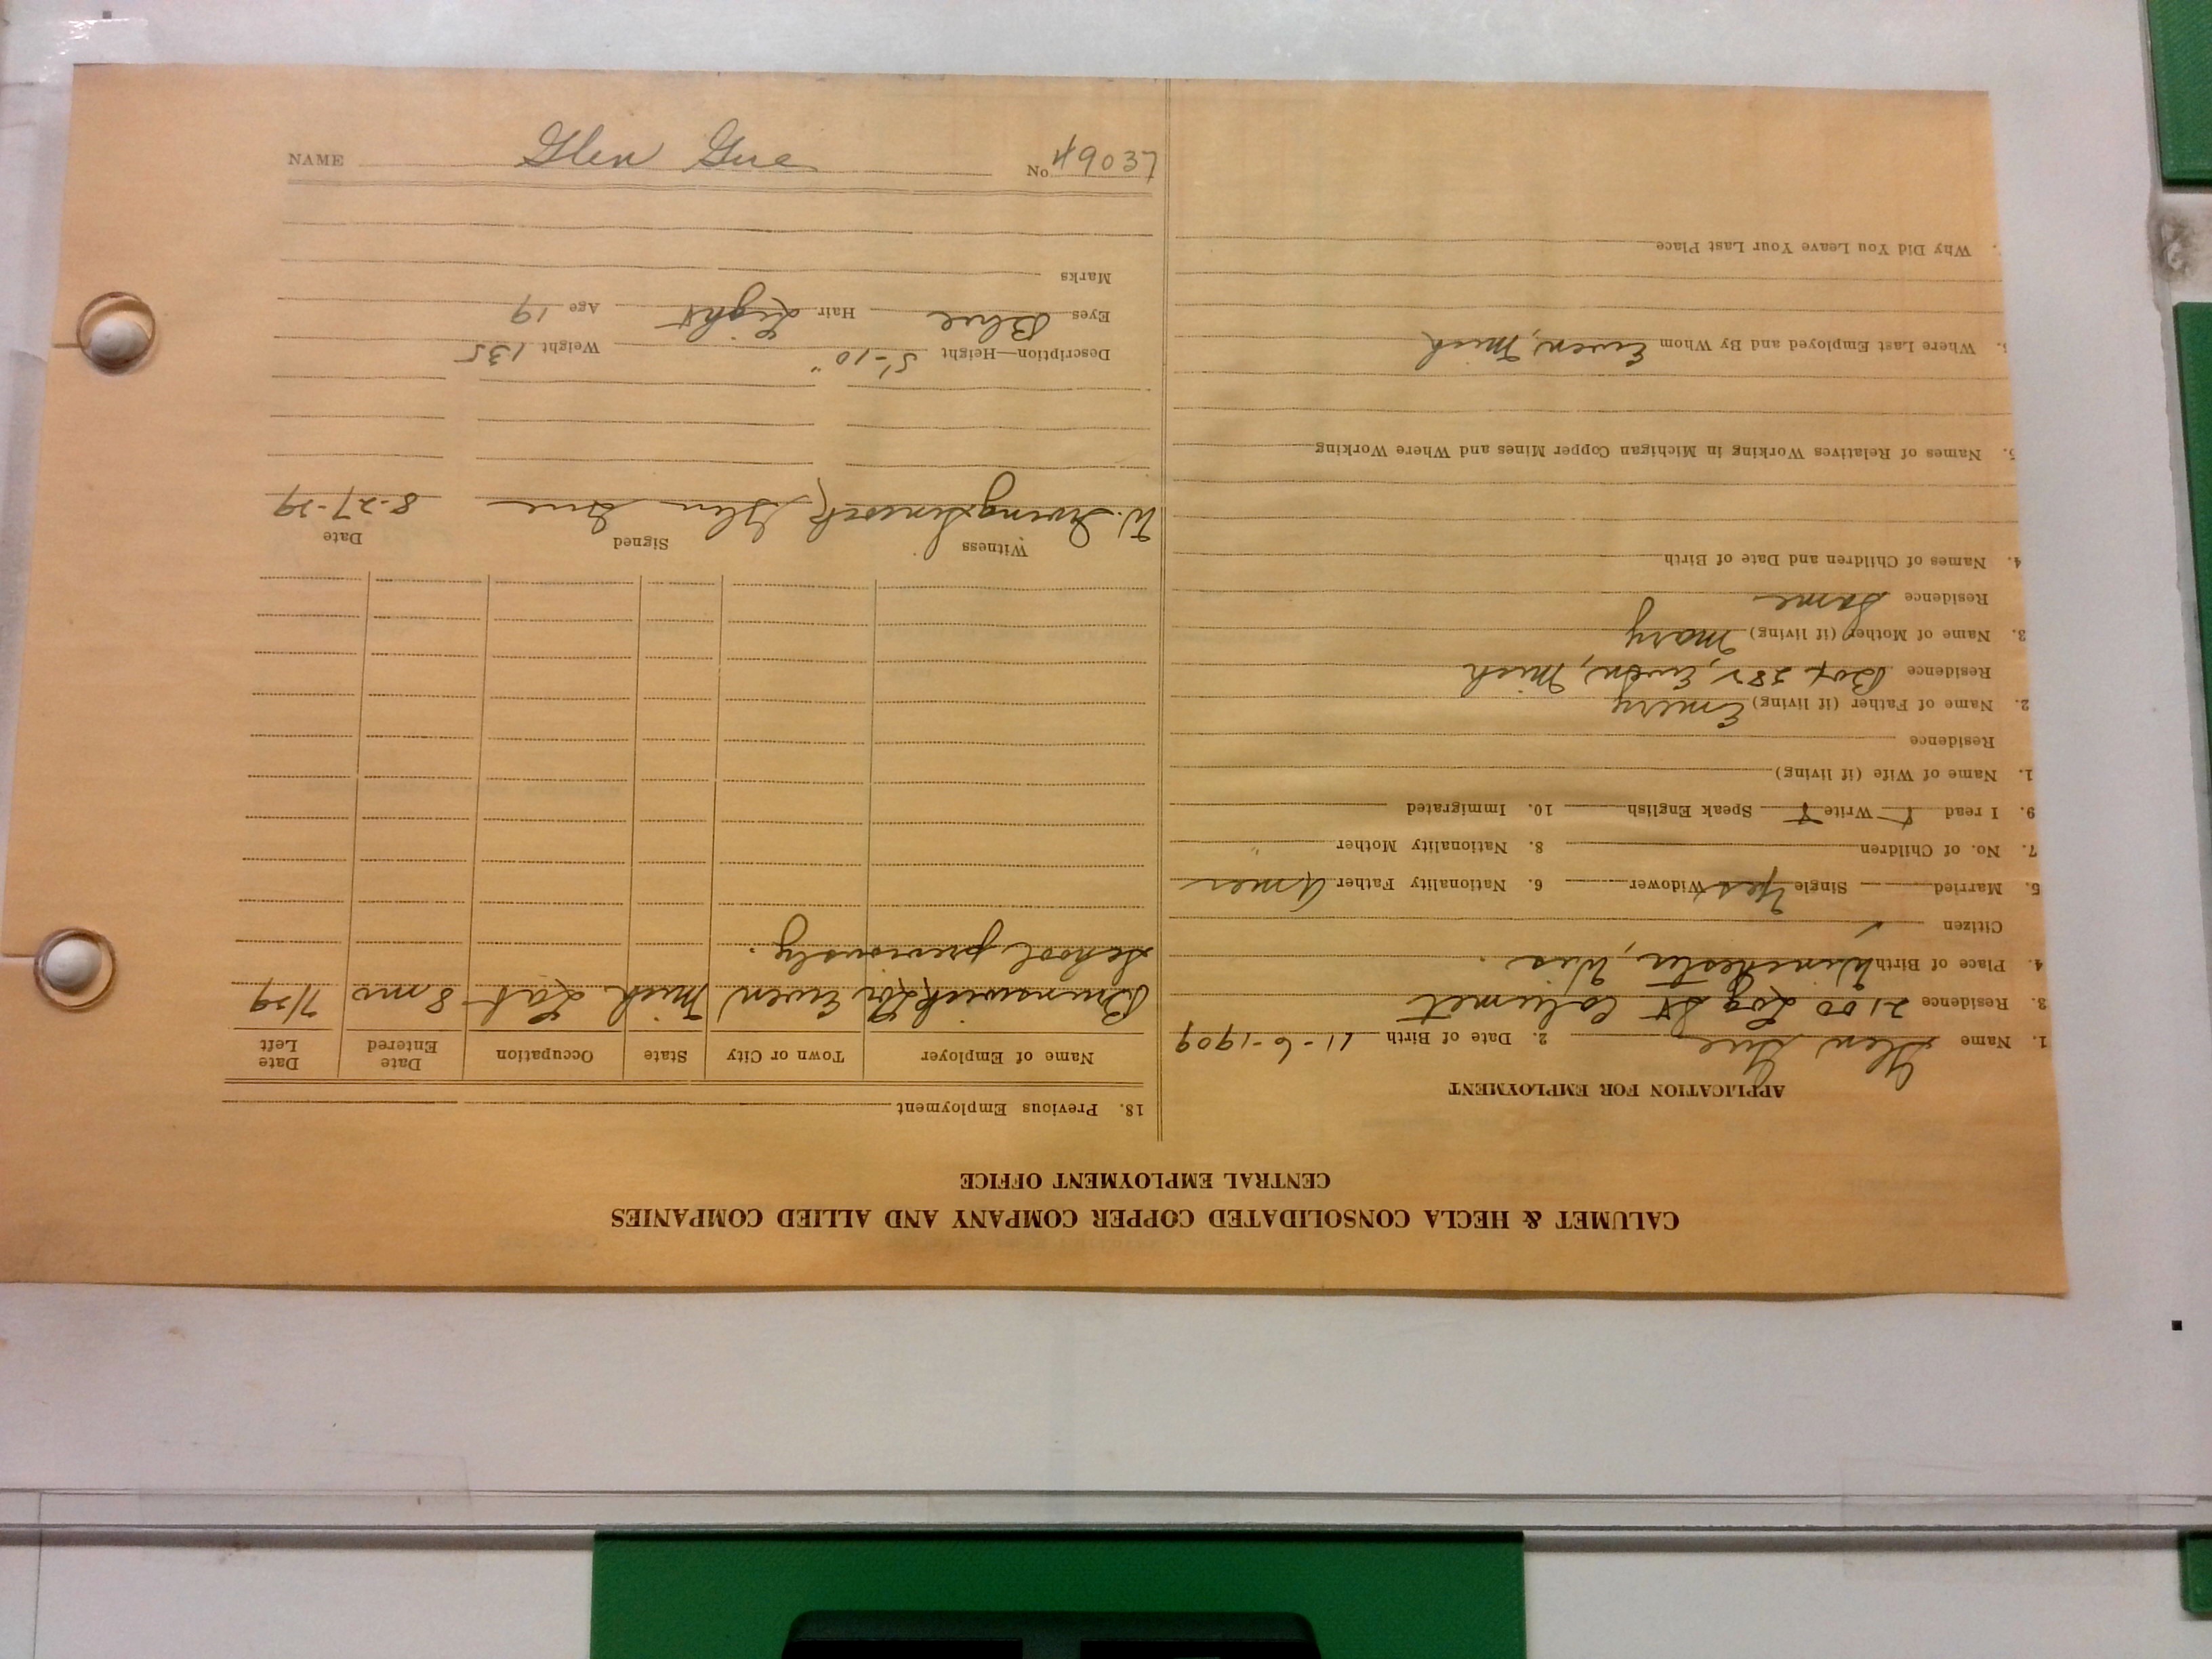 CALUMET & HECLA CONSOLIDATED COPPER COMPANY AND ALLIED COMPANIES
CENTRAL EMPLOYMENT OFFICE
APPLICATION FOR EMPLOYMENT
1. Name Glen Gue 2. Date of Birth 11-6-1909
3. Residence 2100 Log St Calumet
4. Place of Birth Winchester, Wis.
Citizen ✓
5. Married Single Yes Widower 6. Nationality Father Amer
7. No. of Children 8. Nationality Mother "
9. I read Write Speak English 10. Immigrated
1. Name of Wife (if living)
Residence
2. Name of Father (if living) Emery
Residence Box 382, Ewen, Mich
3. Name of Mother (if living) Mary
Residence Same
4. Names of Children and Date of Birth
5. Names of Relatives Working in Michigan Copper Mines and Where Working
Where Last Employed and By Whom Ewen, Mich
Why Did You Leave Your Last Place
18. Previous Employment
Name of Employer Town or City State Occupation Date Entered Date Left
Brunswick Ewen Mich Lab 8 mo 7/29
School previously.
Witness Signed Date
W. Irving Glen Gue 8-27-29
Description—Height 5'-10" Weight 135
Eyes Blue Hair Light Age 19
Marks
NAME Glen Gue No 49037